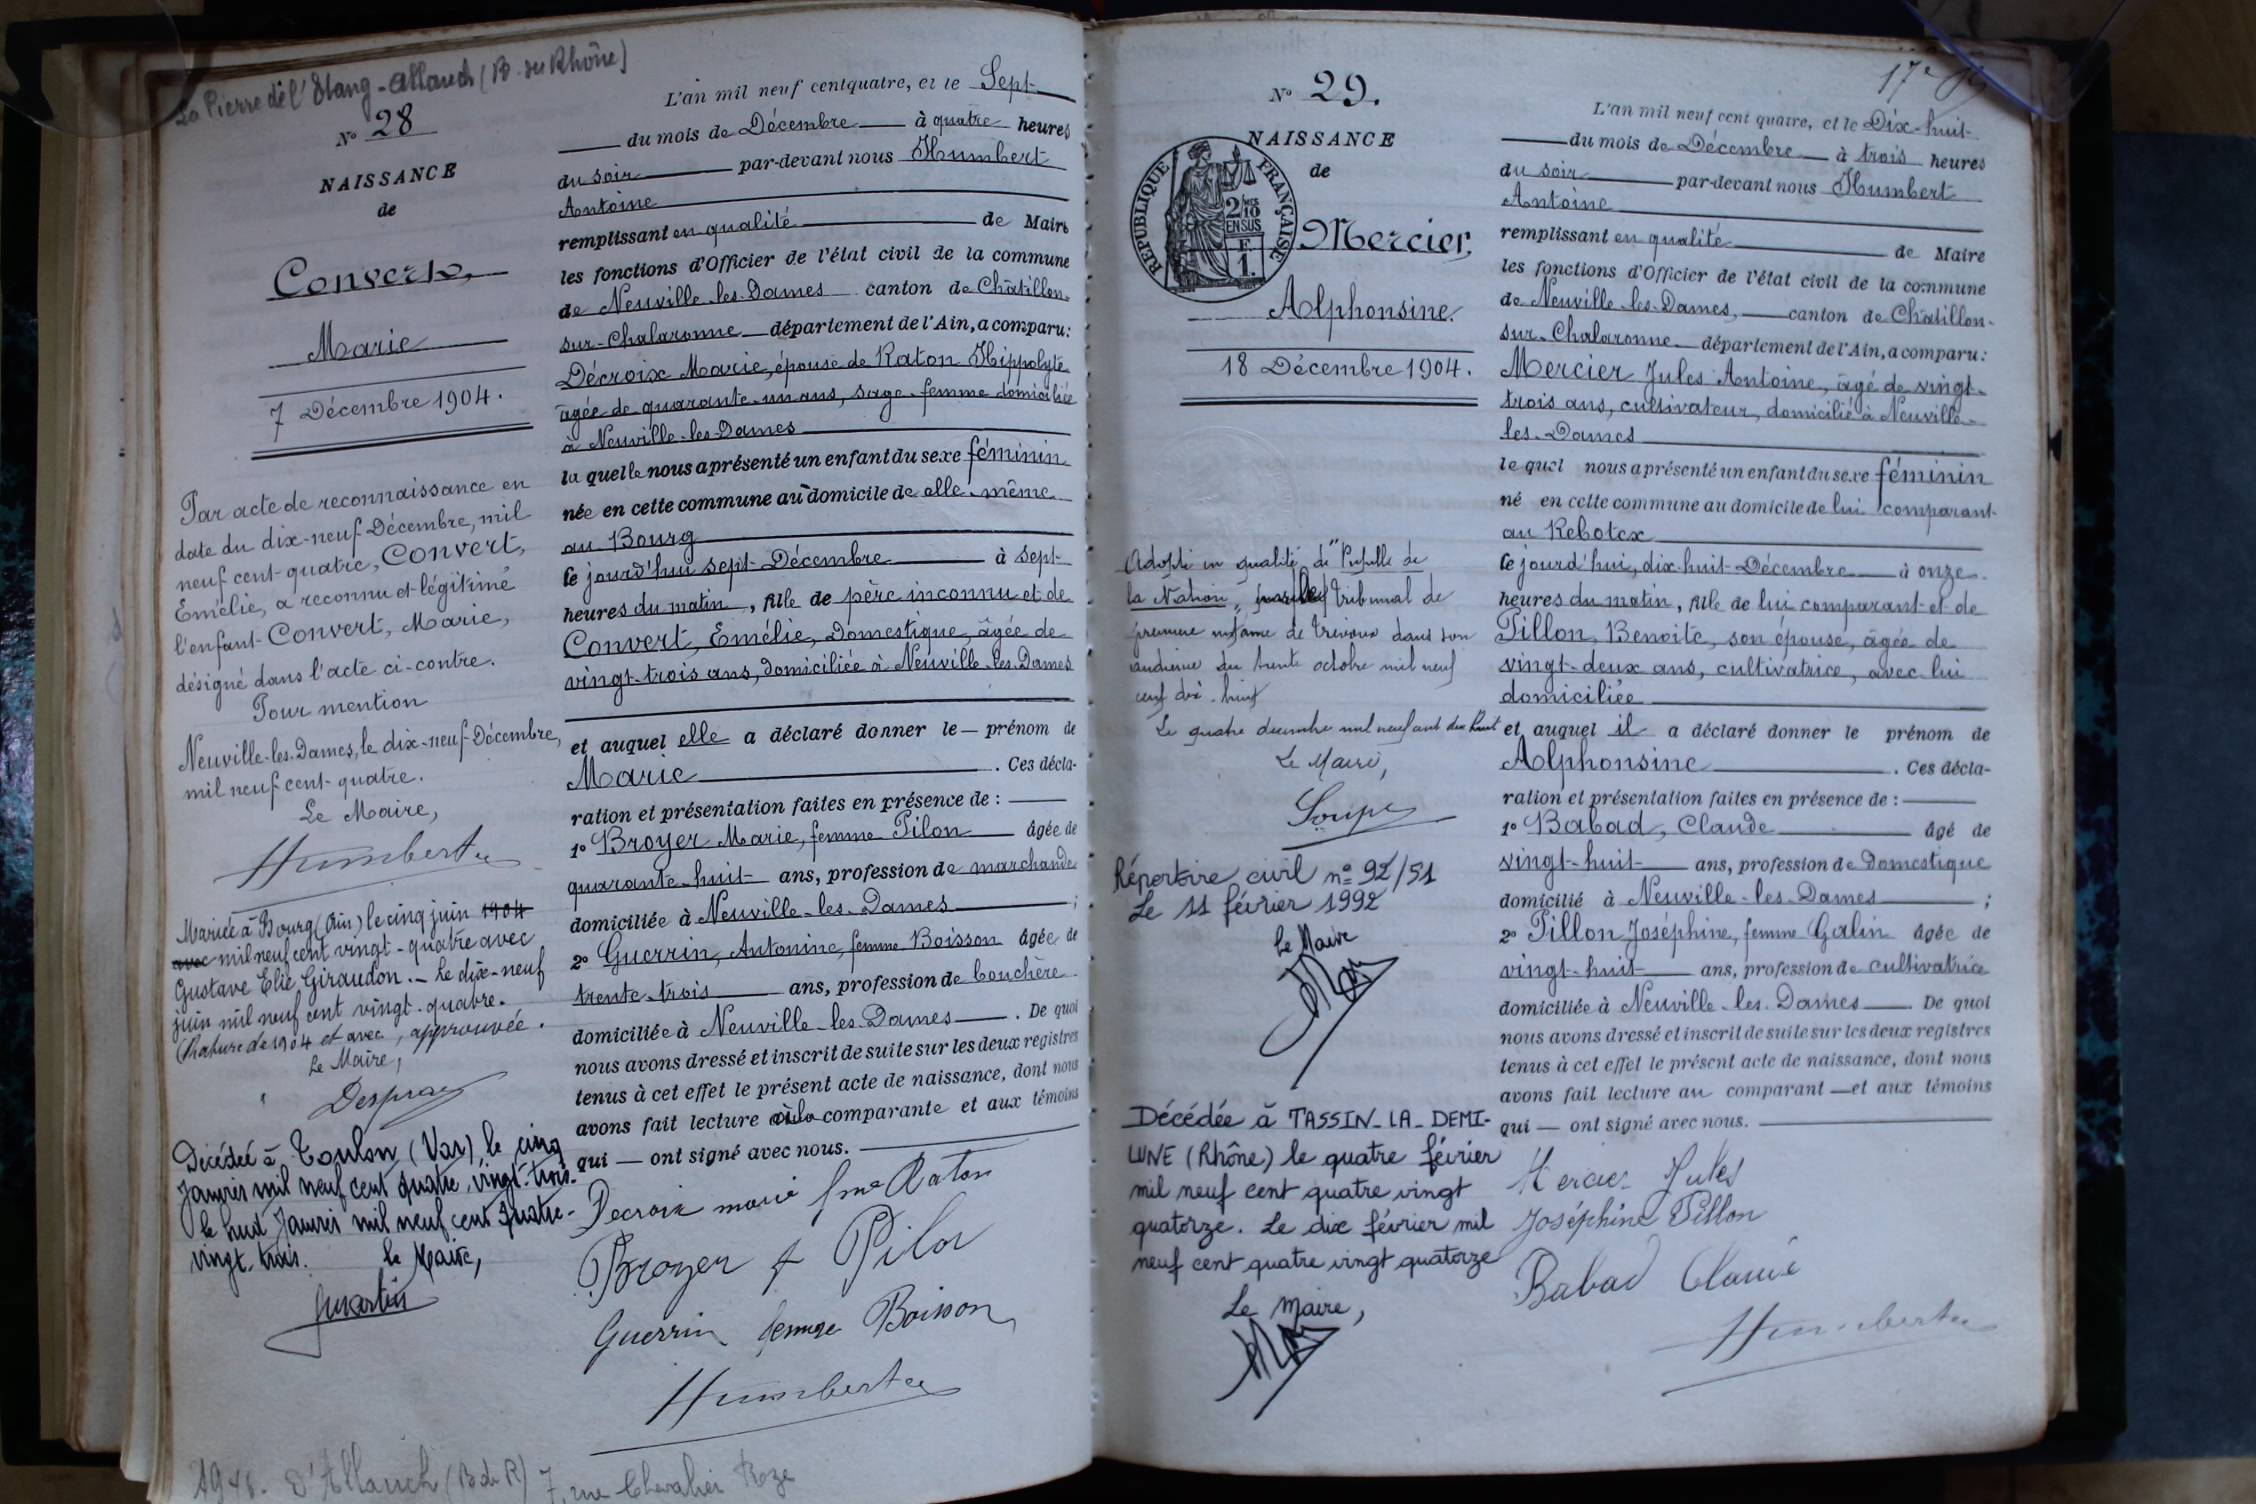 La Pierre de l'Etang - Allauch (B. du Rhône)
N° 28
NAISSANCE
de
Convert,
Marie
7 Décembre 1904.
Par acte de reconnaissance en
date du dix-neuf Décembre, mil
neuf cent quatre, Convert,
Emélie, a reconnu et légitimé
l'enfant Convert, Marie,
désigné dans l'acte ci-contre.
Pour mention
Neuville-les-Dames, le dix-neuf Décembre,
mil neuf cent quatre.
Le Maire,
Humbert
Mariée à Bourg (Ain) le cinq juin 1904
avec mil neuf cent vingt-quatre avec
Gustave Elie Giraudon. - Le dix-neuf
juin mil neuf cent vingt-quatre.
(Rature de 1904 et avec, approuvée.
Le Maire,
Décédée à Toulon (Var) le cinq
Janvier mil neuf cent quatre-vingt-trois.
le huit Janvier mil neuf cent quatre-
vingt-trois. le Maire,
L'an mil neuf cent quatre, et le Sept
du mois de Décembre à quatre heures
du soir par-devant nous Humbert
Antoine
remplissant en qualité de Maire
les fonctions d'Officier de l'état civil de la commune
de Neuville-les-Dames canton de Châtillon-
sur-Chalaronne département de l'Ain, a comparu:
Décroix Marie, épouse de Raton Hippolyte
âgée de quarante-un ans, sage-femme domiciliée
à Neuville-les-Dames
la quelle nous a présenté un enfant du sexe féminin
née en cette commune au domicile de elle-même
au Bourg
le jourd'hui sept Décembre à sept
heures du matin, fille de père inconnu et de
Convert, Emélie, Domestique, âgée de
vingt-trois ans, domiciliée à Neuville-les-Dames
et auquel elle a déclaré donner le prénom de
Marie. Ces décla-
ration et présentation faites en présence de :
1° Broyer Marie, femme Pilon âgée de
quarante-huit ans, profession de marchande
domiciliée à Neuville-les-Dames ;
2° Guerrin, Antonine, femme Boisson âgée de
trente-trois ans, profession de bouchère
domiciliée à Neuville-les-Dames. De quoi
nous avons dressé et inscrit de suite sur les deux registres
tenus à cet effet le présent acte de naissance, dont nous
avons fait lecture à la comparante et aux témoins
qui — ont signé avec nous.
Decroix marie fme Raton
Broyer f Pilon
Guerrin femme Boisson
Humbert
D'Allauch (B de R) 7, rue Chevalier Roze
17e
N° 29.
NAISSANCE
de
RÉPUBLIQUE FRANÇAISE
2/10
EN SUS
F.
1.
Mercier,
Alphonsine.
18 Décembre 1904.
Adoptée en qualité de "Pupille de
la Nation" par le tribunal de
première instance de Trévoux dans son
audience du trente octobre mil neuf
cent dix-huit
Le quatre décembre mil neuf cent dix huit
Le Maire,
Répertoire civil n° 92/51
Le 11 février 1992
Le Maire
Décédée à TASSIN-LA-DEMI-
LUNE (Rhône) le quatre février
mil neuf cent quatre vingt
quatorze. Le dix février mil
neuf cent quatre vingt quatorze
Le Maire,
L'an mil neuf cent quatre, et le Dix-huit
du mois de Décembre à trois heures
du soir par-devant nous Humbert
Antoine
remplissant en qualité de Maire
les fonctions d'Officier de l'état civil de la commune
de Neuville-les-Dames, canton de Châtillon-
sur-Chalaronne département de l'Ain, a comparu:
Mercier Jules Antoine, âgé de vingt-
trois ans, cultivateur, domicilié à Neuville-
les-Dames
le quel nous a présenté un enfant du sexe féminin
né en cette commune au domicile de lui comparant
au Rebotex
le jourd'hui, dix-huit Décembre à onze
heures du matin, fille de lui comparant et de
Pillon, Benoite, son épouse, âgée de
vingt-deux ans, cultivatrice, avec lui
domiciliée
et auquel il a déclaré donner le prénom de
Alphonsine. Ces décla-
ration et présentation faites en présence de :
1° Babad, Claude âgé de
vingt-huit ans, profession de Domestique
domicilié à Neuville-les-Dames ;
2° Pillon Joséphine, femme Galin âgée de
vingt-huit ans, profession de cultivatrice
domiciliée à Neuville-les-Dames. De quoi
nous avons dressé et inscrit de suite sur les deux registres
tenus à cet effet le présent acte de naissance, dont nous
avons fait lecture au comparant — et aux témoins
qui — ont signé avec nous.
Mercier Jules
Joséphine Pillon
Babad Claude
Humbert